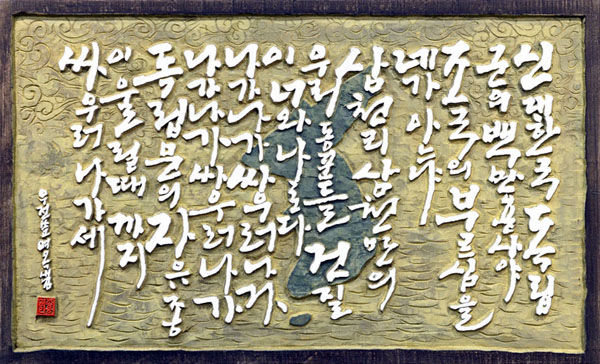 신대한국 독립
군의 백만용사야
조국의 부르심을
네가 아느냐
삼천리 삼천만의
우리 동포들 건질
이 너와 나로다
나가 나가 싸우러 나가
나가 나가 싸우러 나가
독립문의 자유종
이 울릴 때까지
싸우러 나가세